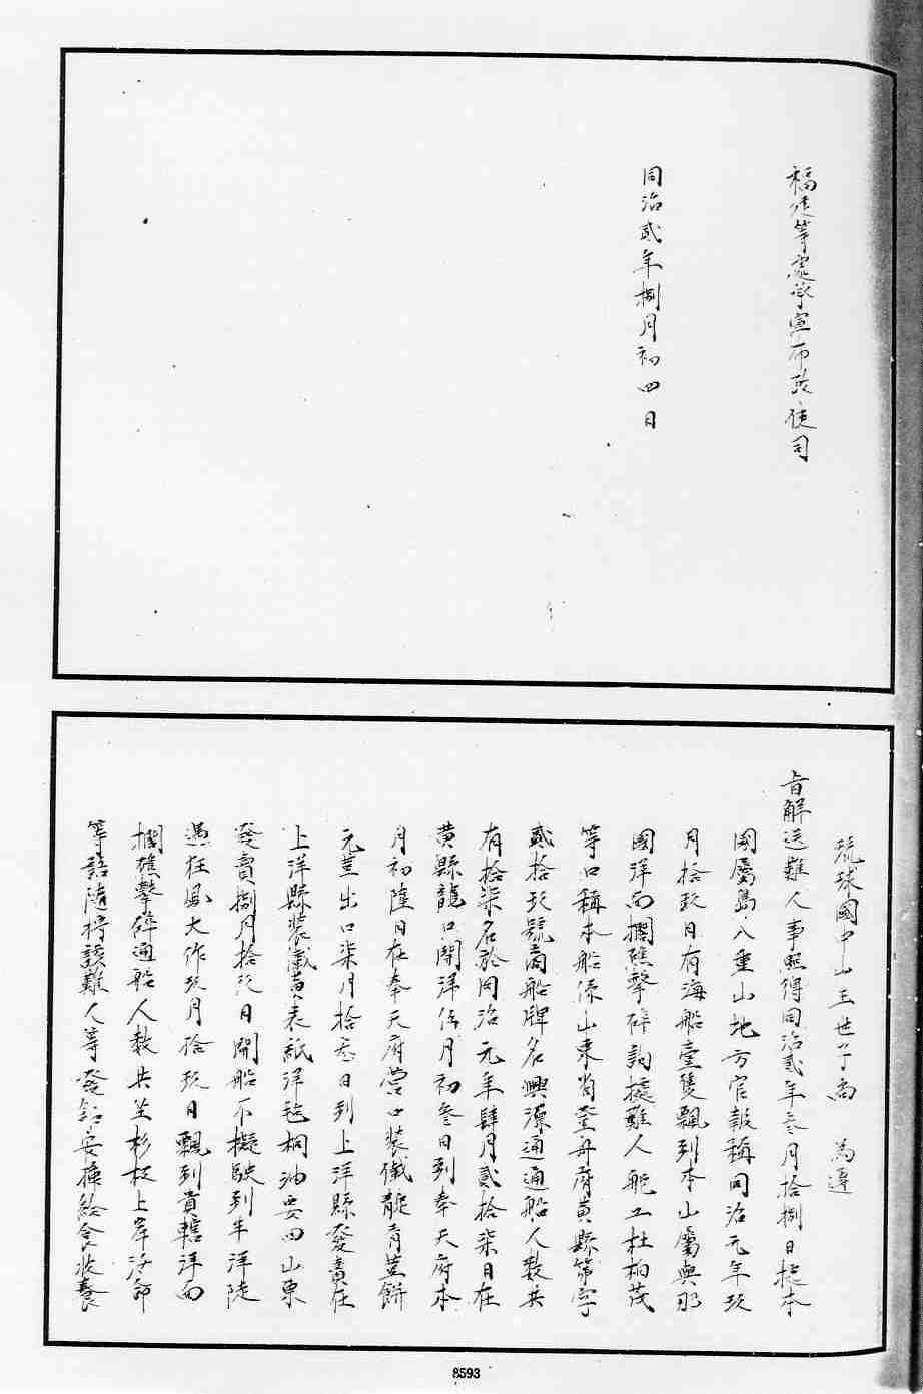 福建等處承宣布政使司
同治貳年捌月初四日
琉球國中山王世子尚　為遵
旨解送難人事照得同治貳年叁月拾捌日據本
國屬島八重山地方官報稱同治元年玖
月拾玖日有海船壹隻飄到本山屬與那
國洋面擱礁擊碎詢據難人舵工杜柏茂
等口稱本船係山東省登州府黃縣第字
貳拾玖號商船牌名興源通通船人數共
有拾柒名於同治元年肆月貳拾柒日在
黃縣龍口開洋伍月初叁日到奉天府本
月初陸日在奉天府營口裝儎青荳餅
元荳出口柒月拾叁日到上洋縣發賣在
上洋縣裝儎黃表紙洋毯桐油要回山東
發賣捌月拾玖日開船不擬駛到半洋陡
遇狂風大作玖月拾玖日飄到貴轄洋面
擱礁擊碎通船人數共坐杉板上岸活命
等語隨將該難人等發館安插給食收養
8593